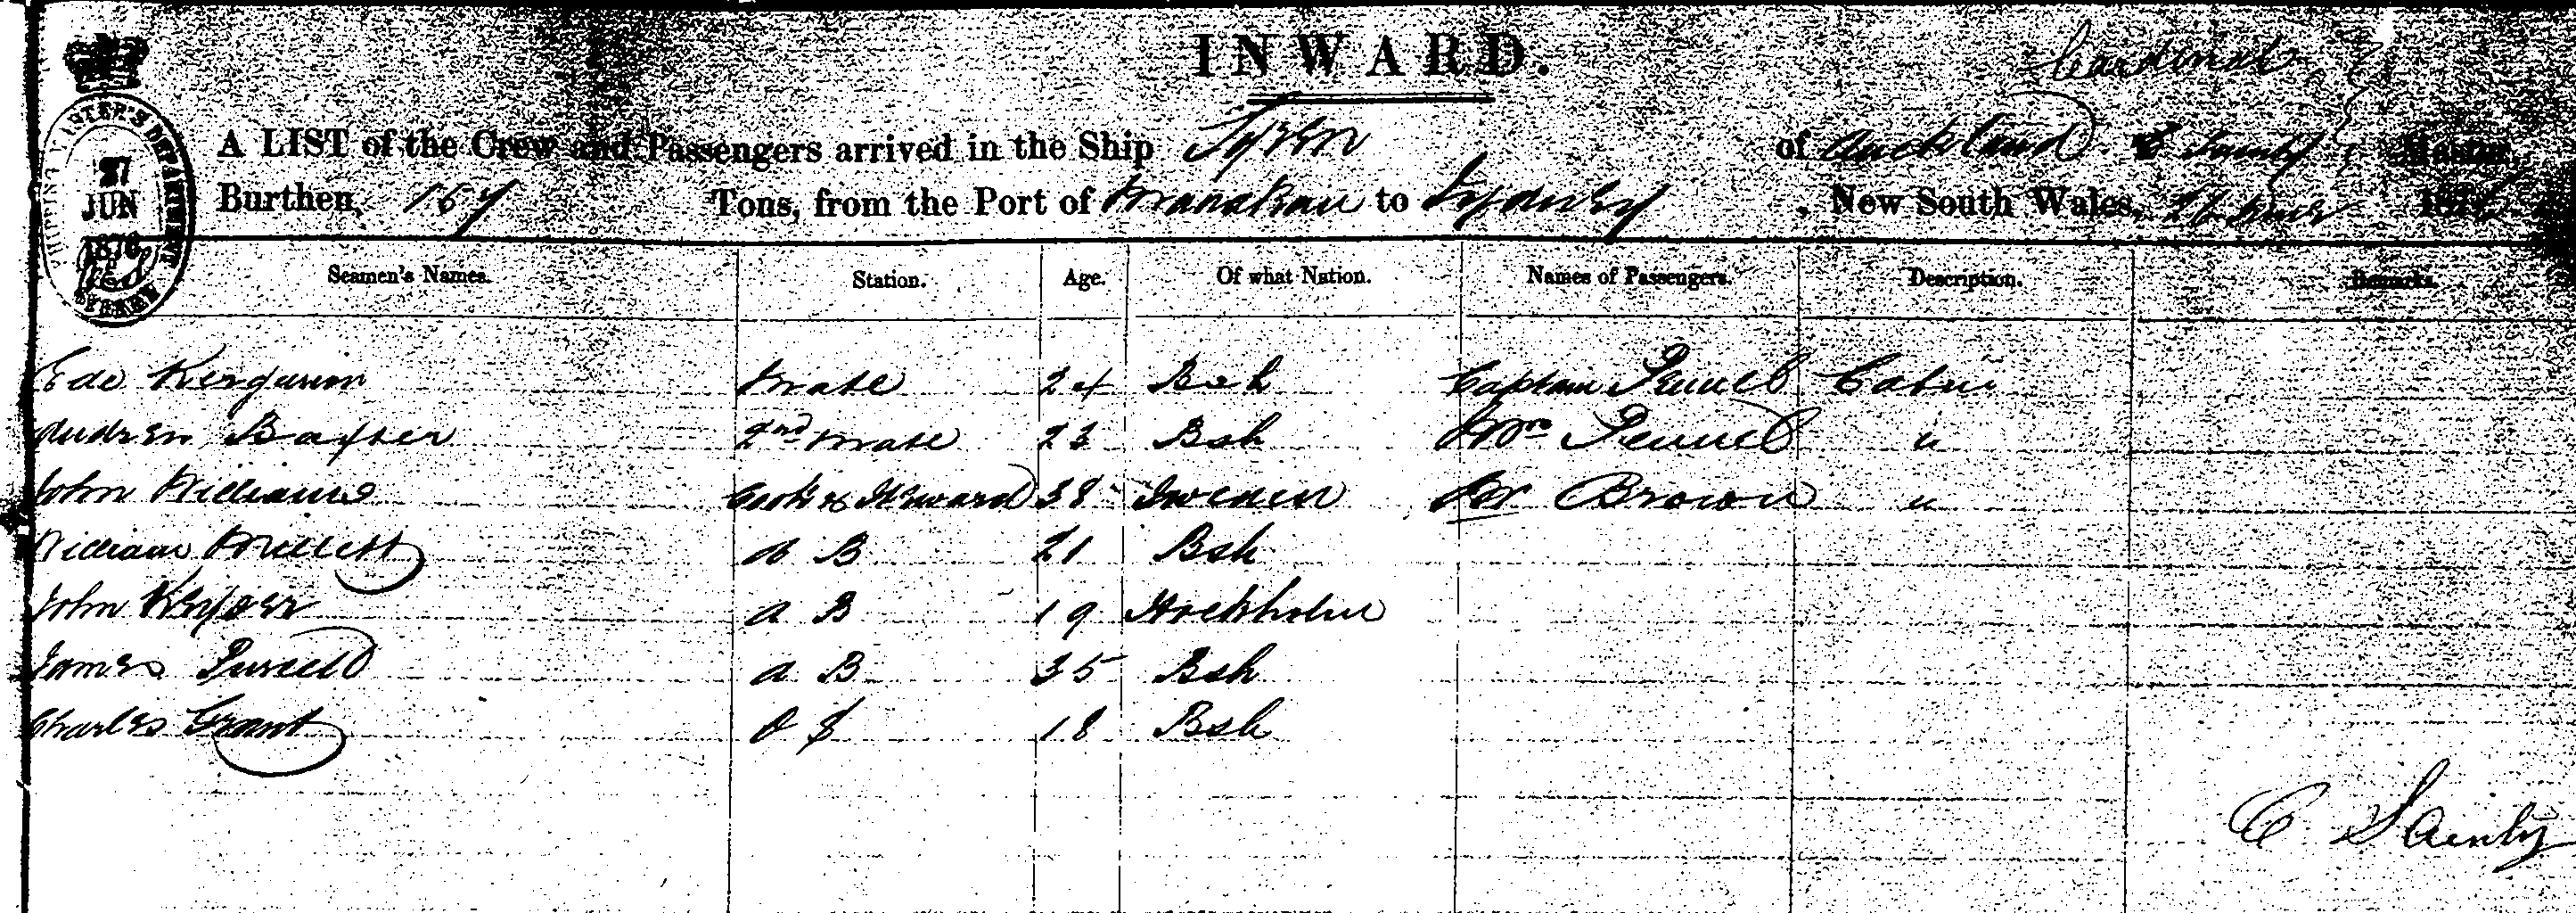 INWARD.
Cardinal
A LIST of the Crew and Passengers arrived in the Ship Syren of Auckland C Sainty Master,
Burthen, 157 Tons, from the Port of Manakau to Sydney, New South Wales, 26 June 1876
SHIPPING MASTER'S DEPARTMENT
27
JUN
1876
SYDNEY
Seamen's Names. Station. Age. Of what Nation. Names of Passengers. Description. Remarks.
Ede mate 24 Bsh Captain Cabin
Andrew Baxter 2nd mate 23 Bsh Mrs "
John Williams Cook & Steward 38 Sweden Mr Brown "
William Millett A B 21 Bsh
John A B 19 Stockholm
James Purcell A B 35 Bsh
Charles Grant O S 18 Bsh
C Sainty